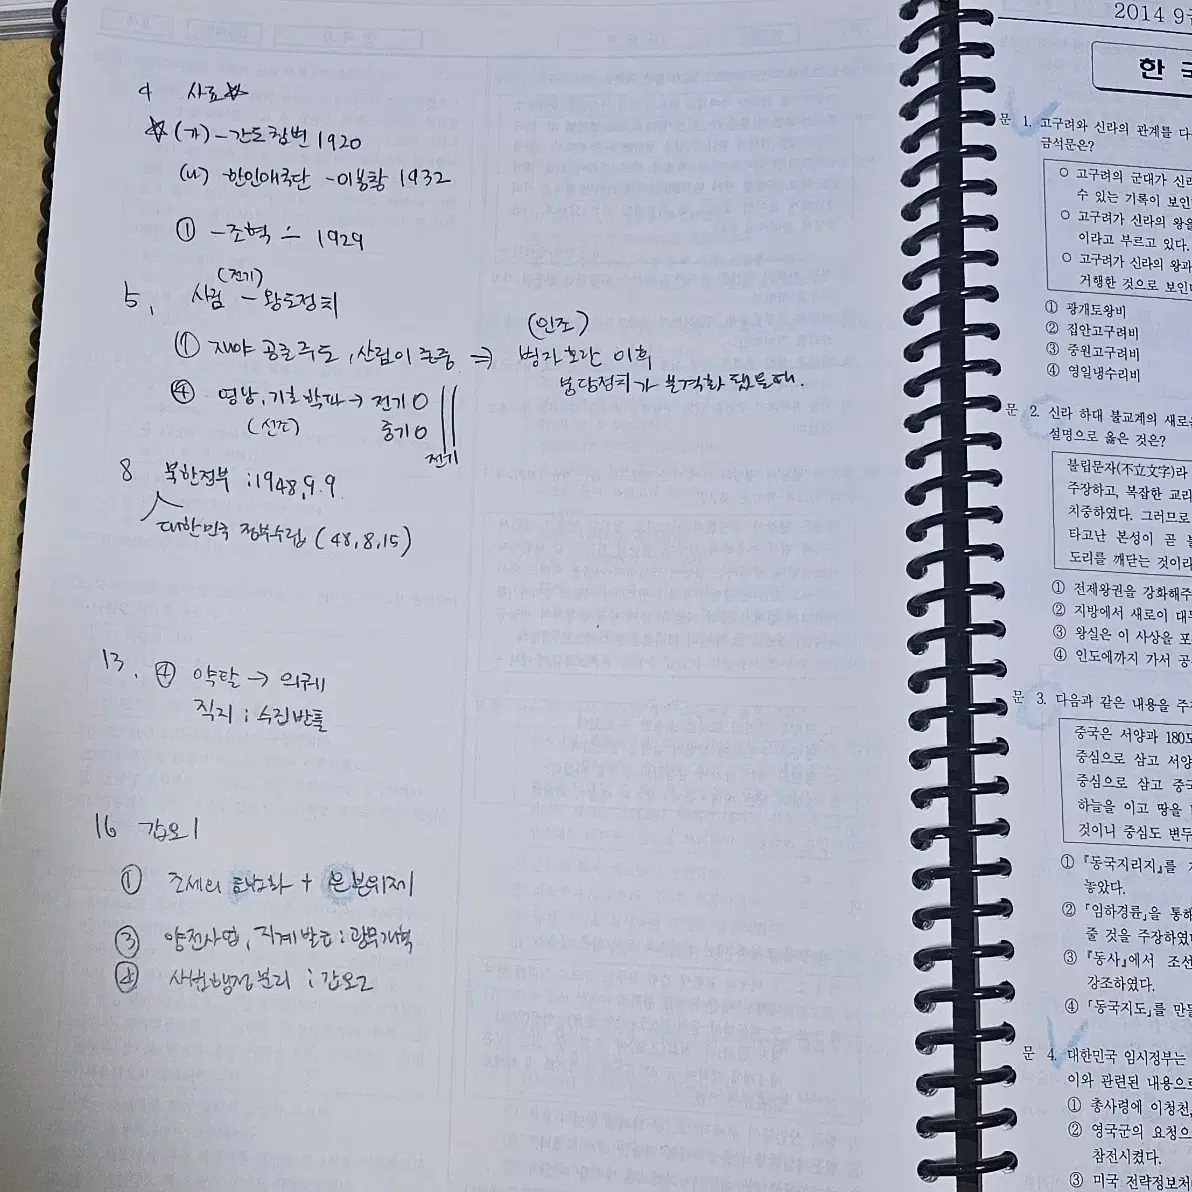 4 사료☆
☆(가) - 간도참변 1920
(나) 한인애국단 - 이봉창 1932
① - 조혁 ∸ 1929
(전기)
5, 사림 - 왕도정치
① 재야 공론 주도, 산림이 존중 ⇒ 병자호란 이후
(인조)
붕당정치가 본격화 됐을때.
④ 영남, 기호학파 → 전기 O
(선조) 중기 O
전기
8 북한정부 : 1948,9.9.
대한민국 정부수립 (48,8,15)
13, ④ 약탈 → 의궤
직지 : 수집반출
16 갑오1
① 조세의 금납화 + 은본위제
③ 양전사업, 지계발급 : 광무개혁
④ 사법행정분리 : 갑오2
2014 9
한
문 1. 고구려와 신라의 관계를 다
금석문은?
○ 고구려의 군대가 신라
수 있는 기록이 보인
○ 고구려가 신라의 왕을
이라고 부르고 있다.
○ 고구려가 신라의 왕과
거행한 것으로 보인
① 광개토왕비
② 집안고구려비
③ 중원고구려비
④ 영일냉수리비
문 2. 신라 하대 불교계의 새로
설명으로 옳은 것은?
불립문자(不立文字)라
주장하고, 복잡한 교리
치중하였다. 그러므로
타고난 본성이 곧
도리를 깨닫는 것이라
① 전제왕권을 강화해주
② 지방에서 새로이 대
③ 왕실은 이 사상을 포
④ 인도에까지 가서 공
문 3. 다음과 같은 내용을 주
중국은 서양과 180도
중심으로 삼고 서양
중심으로 삼고 중국
하늘을 이고 땅을
것이니 중심도 변두
① 『동국지리지』를
놓았다.
② 「임하경륜」을 통해
줄 것을 주장하였
③ 『동사』에서 조선
강조하였다.
④ 「동국지도」를 만들
문 4. 대한민국 임시정부는
이와 관련된 내용으로
① 총사령에 이청천,
② 영국군의 요청으
참전시켰다.
③ 미국 전략정보처